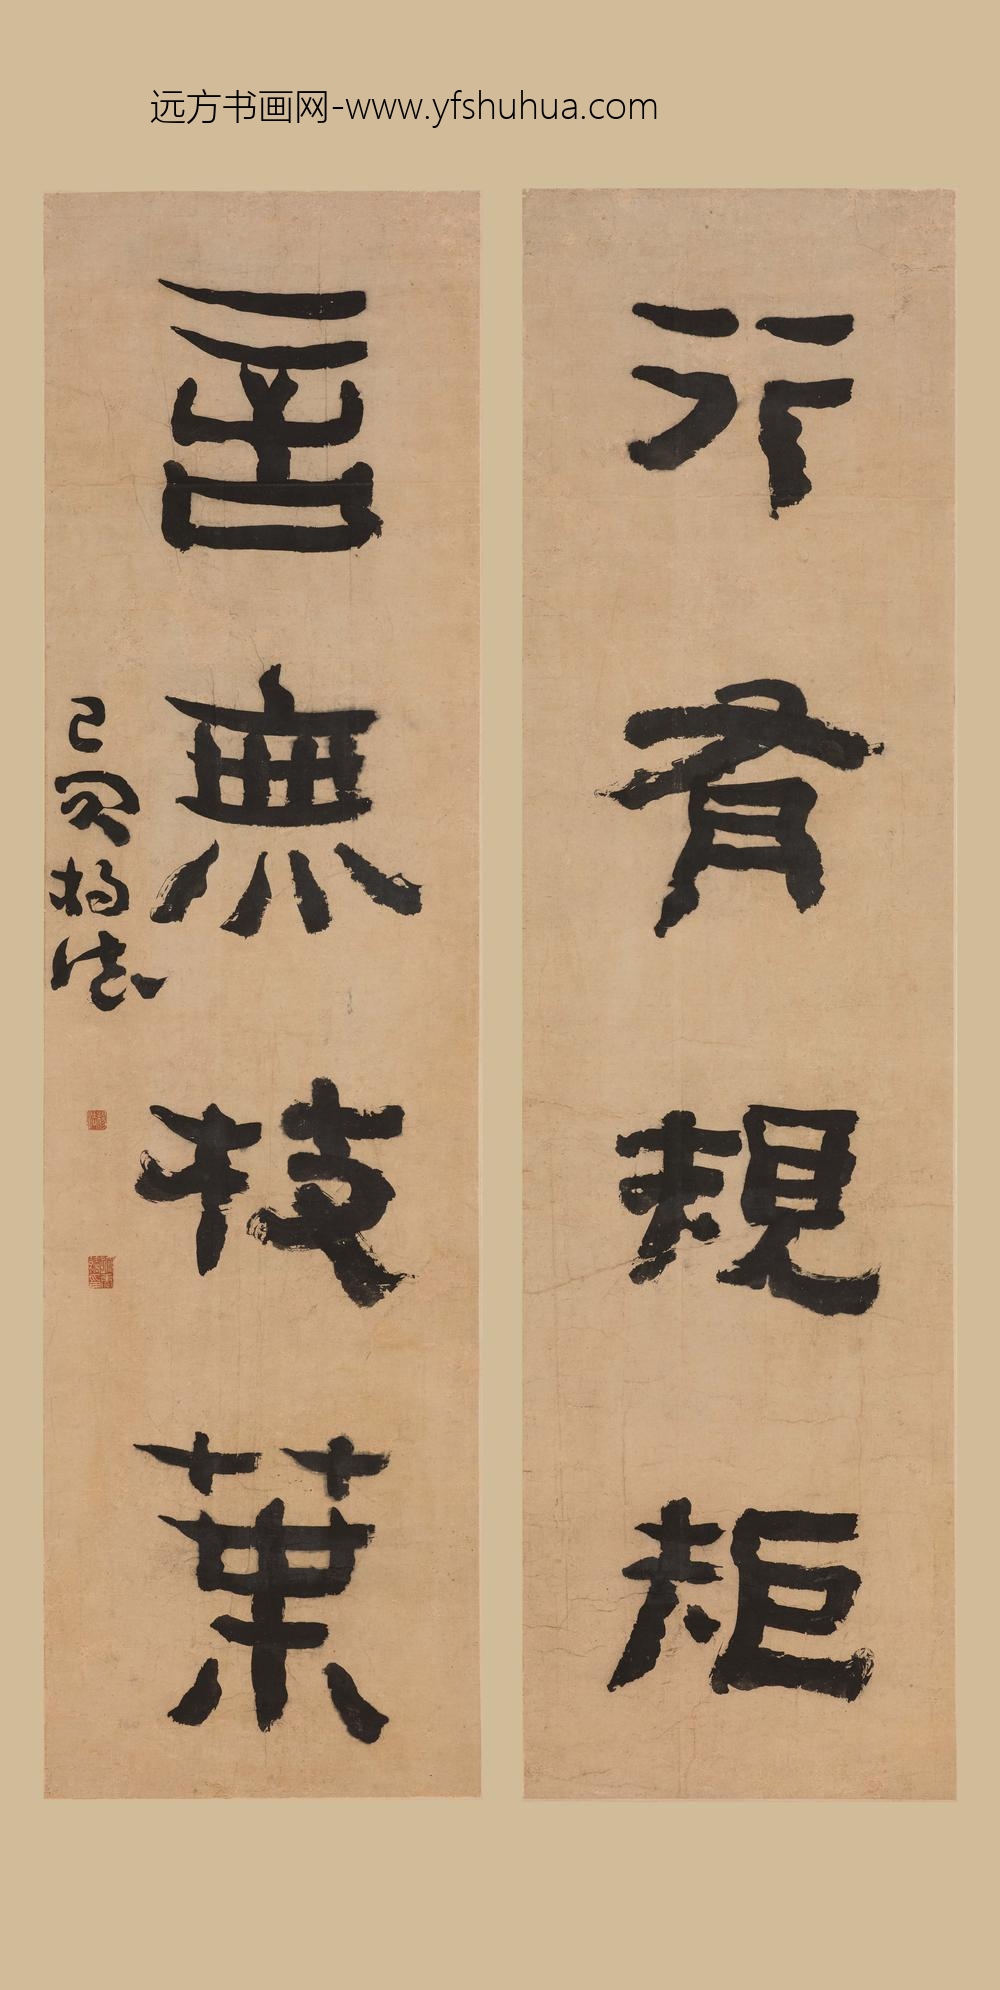 远方书画网-www.yfshuhua.com
行有規矩
言無枝葉
己卯楊法